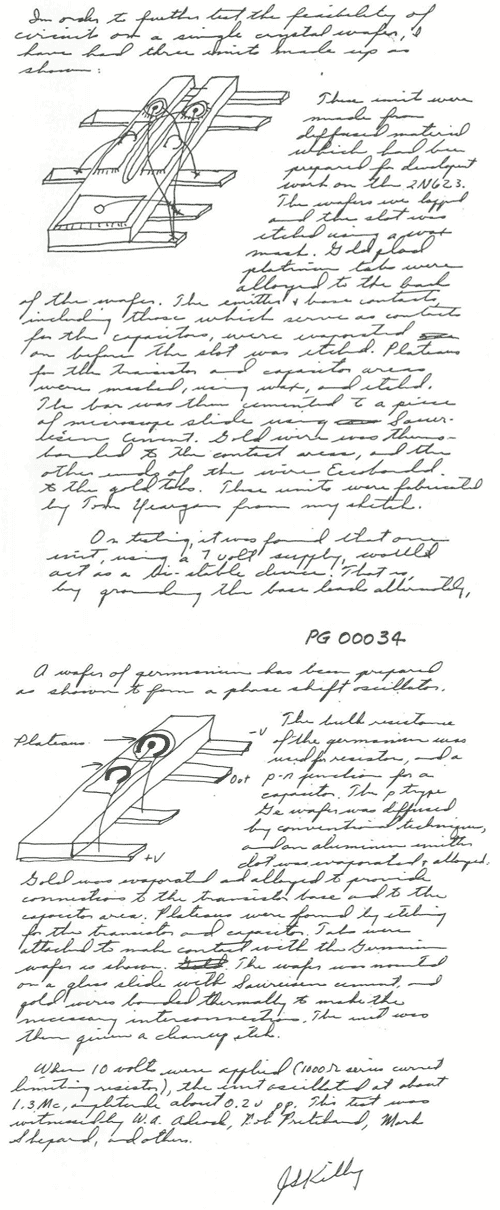 In order to further test the feasibility of
circuits on a single crystal wafer, I
have had three units made up as
shown:
These unit were
made from
diffused material
which had been
prepared for developent
work on the 2N623.
The wafers we lapped
and the slot was
etched using a wax
mask. Gold plad
platinum tabs were
alloyed to the back
of the wafer. The emitter & base contacts,
including those which serve as contacts
for the capacitors, were evaporated
on before the slot was etched. Plateaus
for the transistor and capacitor areas
were masked, using wax, and etched.
The bar was then cemented to a piece
of microscope slide using Sauer-
eising Cement. Gold wire was thermo-
bonded to the contact areas, and the
other ends of the wire
to the gold tabs. These units were fabricated
by Tom Yeargan from my sketch.
On testing, it was found that one
unit, using a 7 volt supply, would
act as a bi-stable device. That is,
by grounding the base leads alternately,
PG 00034
A wafer of germanium has been prepared
as shown to form a phase shift oscillator.
Plateaus
-V
Out
+V
The bulk resistance
of the germanium was
used for resistor, and a
p-n junction for a
capacitor. The p type
Ge wafer was diffused
by conventional techniques,
and an aluminum emitter
dot was evaporated & alloyed.
Gold was evaporated and alloyed to provide
connections to the transistor base and to the
capacitor area. Plateaus were formed by etching
for the transistor and capacitor. Tabs were
attached to make contact with the Germanium
wafer as shown. The wafer was mounted
on a glass slide with Sauereisen cement, and
gold wires bonded thermally to make the
necessary interconnections. The unit was
then given a cleanup etch.
When 10 volts were applied (1000 Ω series current
limiting resistor), the unit oscillated at about
1.3 Mc, amplitude about 0.2 v pp. This test was
witnessed by W.A. Adcock, Bob Pritchard, Mark
Shepard, and others.
JSKilby